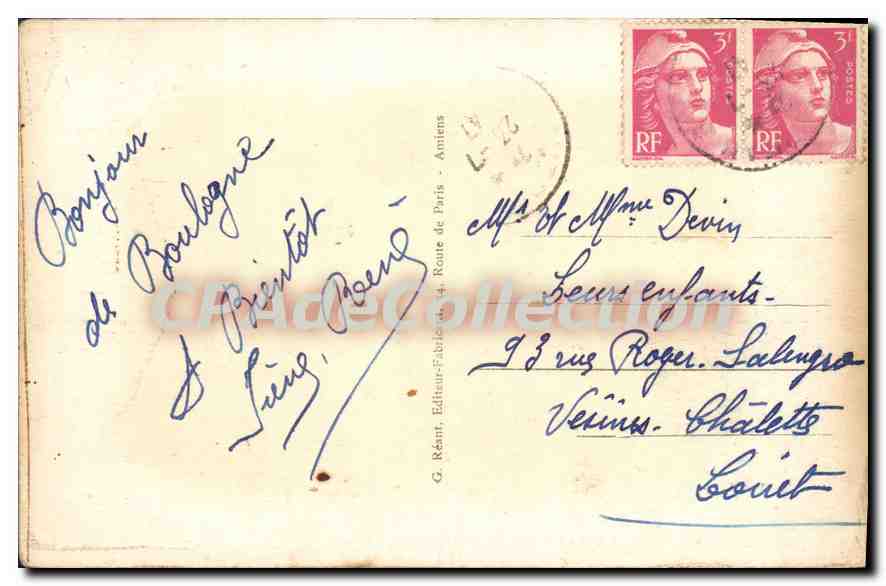 Bonjour
de Boulogne
A Bientôt
René
G. Réant, Editeur-Fabricant, 14, Route de Paris - Amiens
3F
POSTES
RF
3F
POSTES
RF
Mr et Mme Devin
Leurs enfants.
93 rue Roger. Salengro
Vésines. Châlette
Loiret
CPAdeCollection